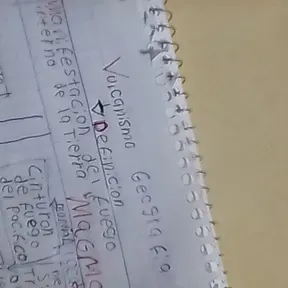 Geografia
Vulcanismo
Definicion
Manifestacion del fuego
interno de la Tierra MAGMA
Cinturon
de fuego
del Pacifico